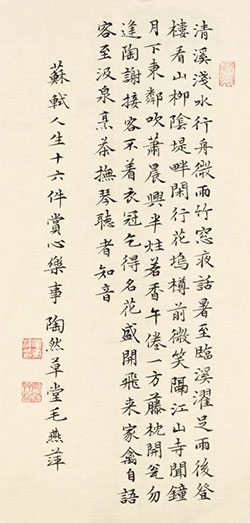 清溪淺水行舟微雨竹窓夜話暑至臨溪濯足雨後登
樓看山柳陰堤畔閑行花塢樽前微笑隔江山寺聞鐘
月下東鄰吹蕭晨興半炷茗香午倦一方藤枕開瓮勿
逢陶謝接客不着衣冠乞得名花盛開飛来家禽自語
客至汲泉烹茶撫琴聽者知音
蘇軾人生十六件賞心樂事 陶然草堂毛燕萍